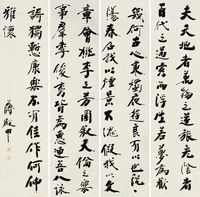 夫天地者萬物之逆旅光陰者
百代之過客而浮生若夢為歡
幾何古人秉燭夜遊良有以也況
陽春召我以煙景大塊假我以文
章會桃李之芳園敘天倫之樂
事羣季俊秀皆為惠連吾人詠
謌獨慙康樂不有佳作何伸
雅懷